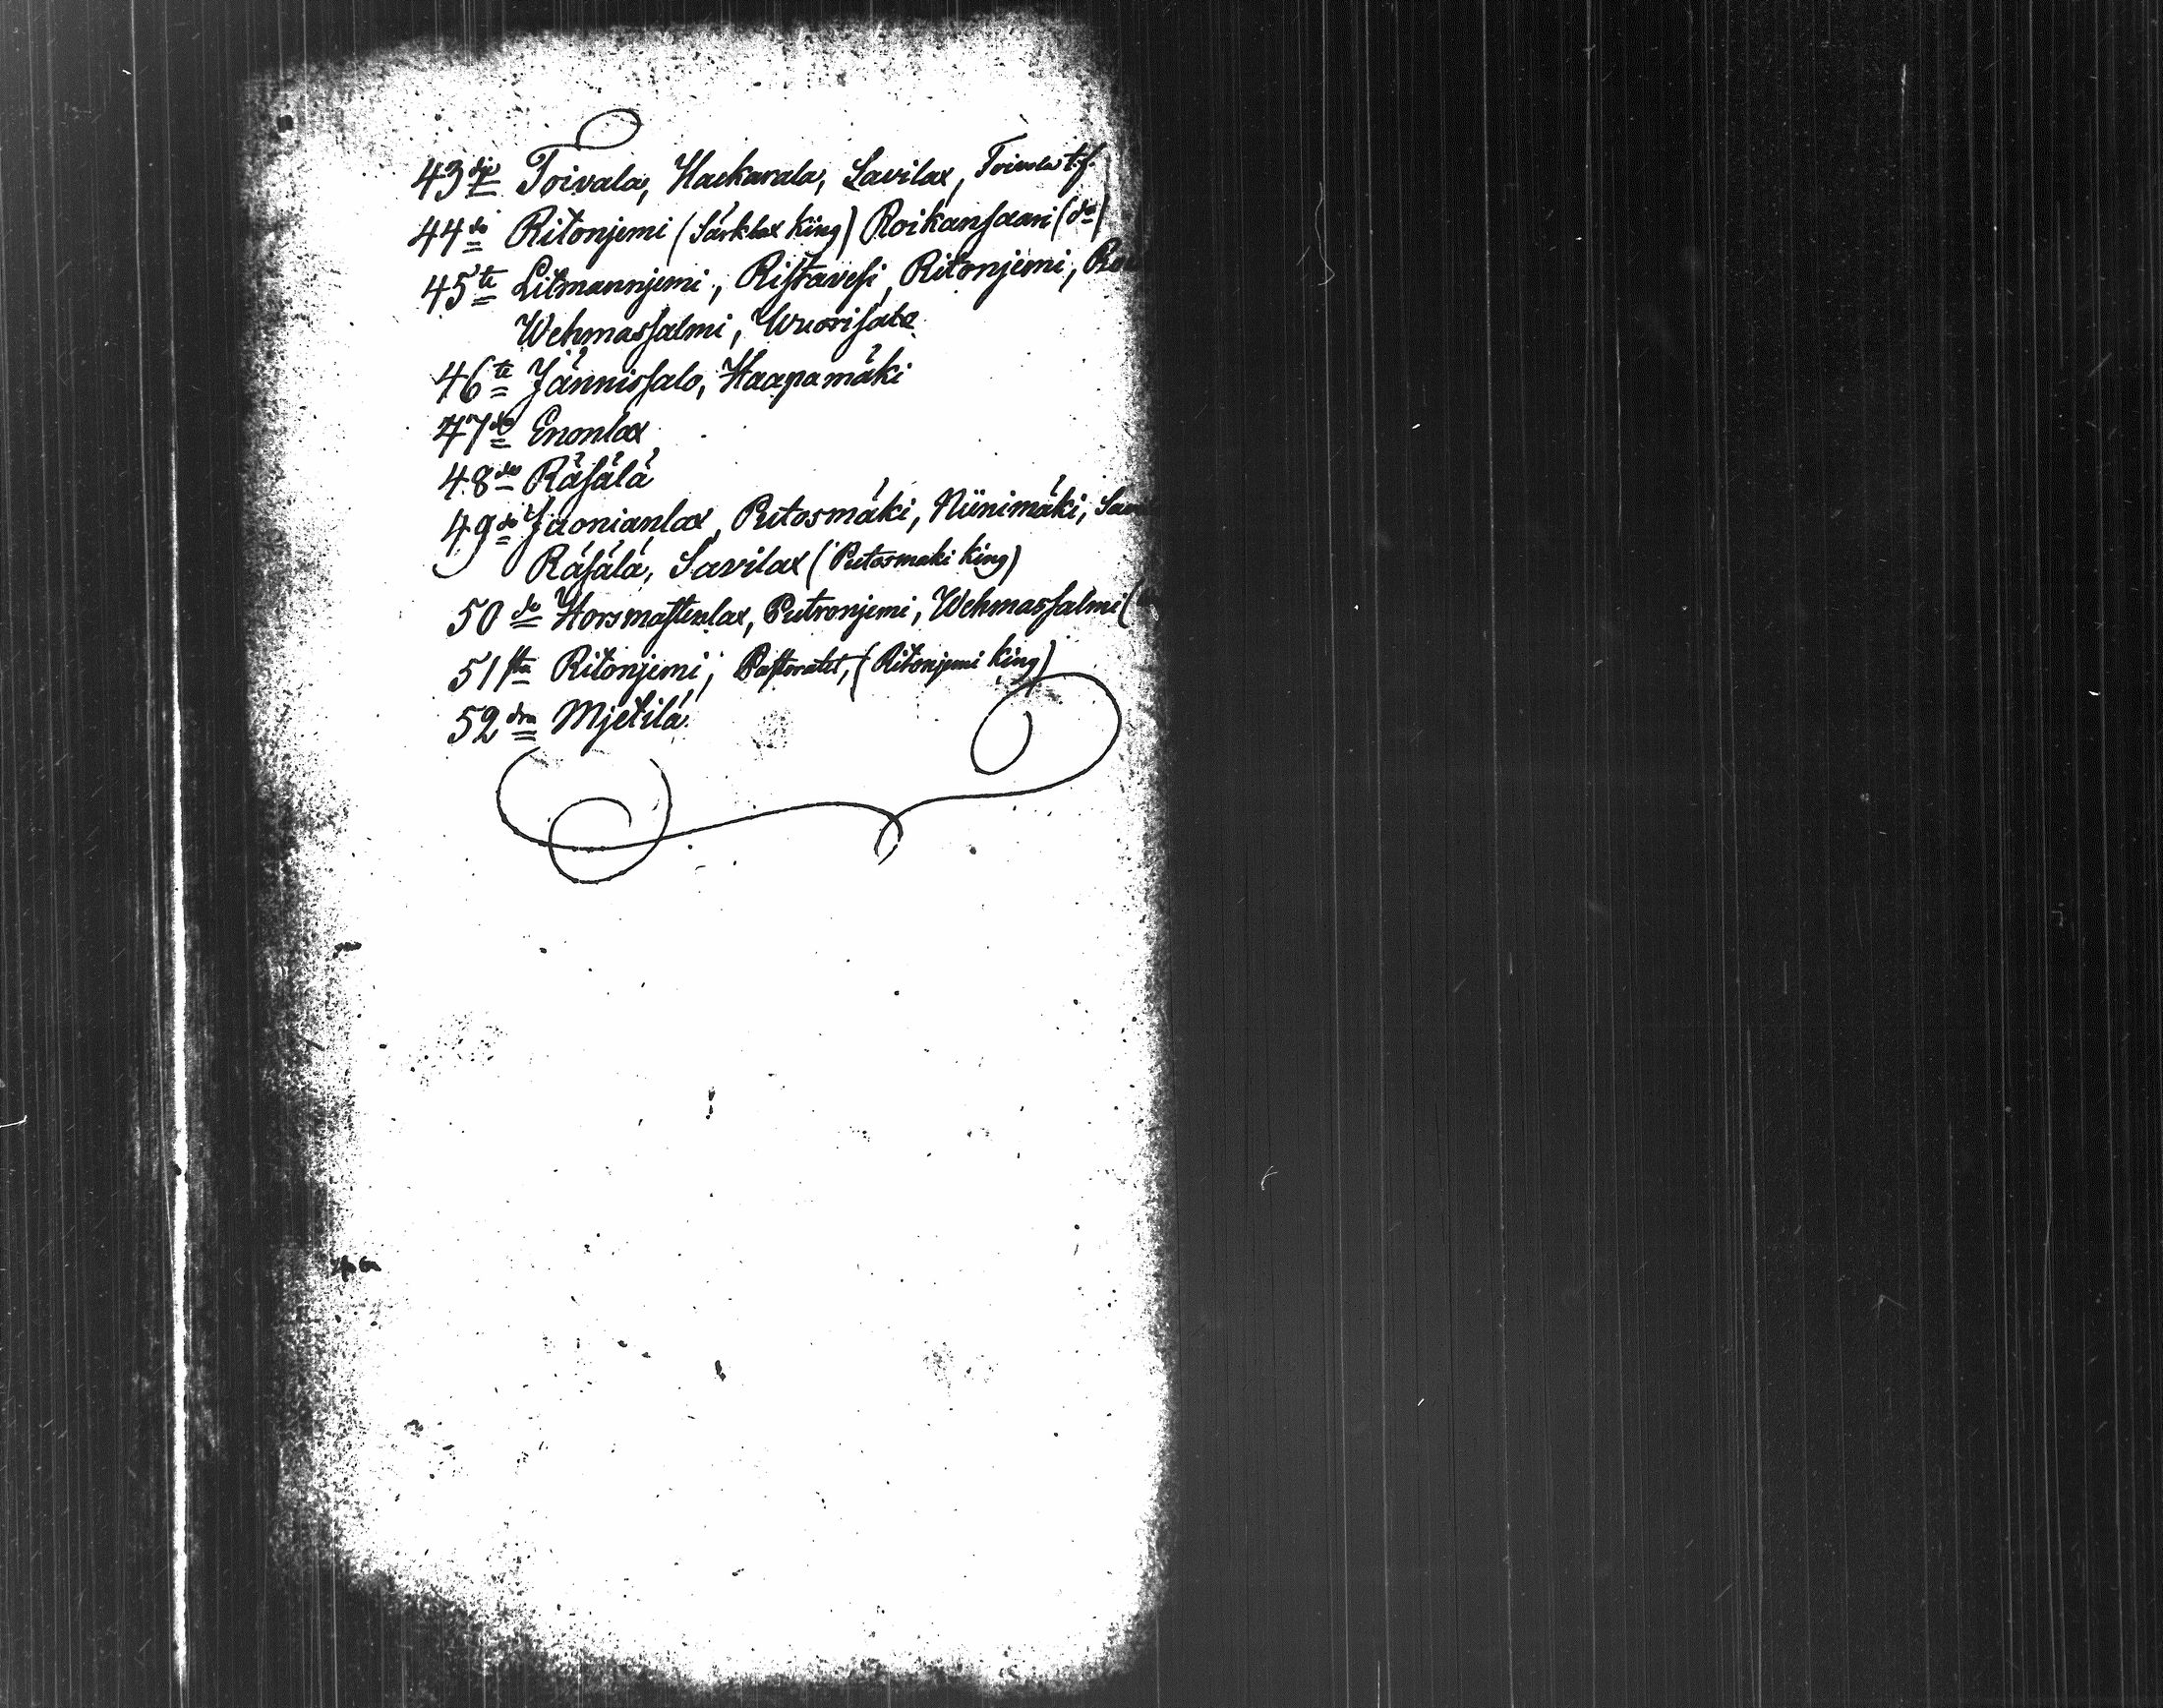 43dje Toivala, Hackarala, Savilax, Toivala t.f.
44do Ritonjemi (Särklax King) Roikansaari (do)
45te Litmannjemi, Ristavesi, Ritonjemi,
Wehmassalmi, Wuorisalo
46te Jännissalo, Haapamäki
47de Enonlax
48de Räsälä
49de Juonianlax, Putosmäki, Niinimäki,
Räsälä, Savilax (Putosmäki King)
50de Horsmastenlax, Putronjemi, Wehmassalmi (
51sta Ritonjemi, Pastoratet, (Ritonjemi King)
52dra Mjetilä